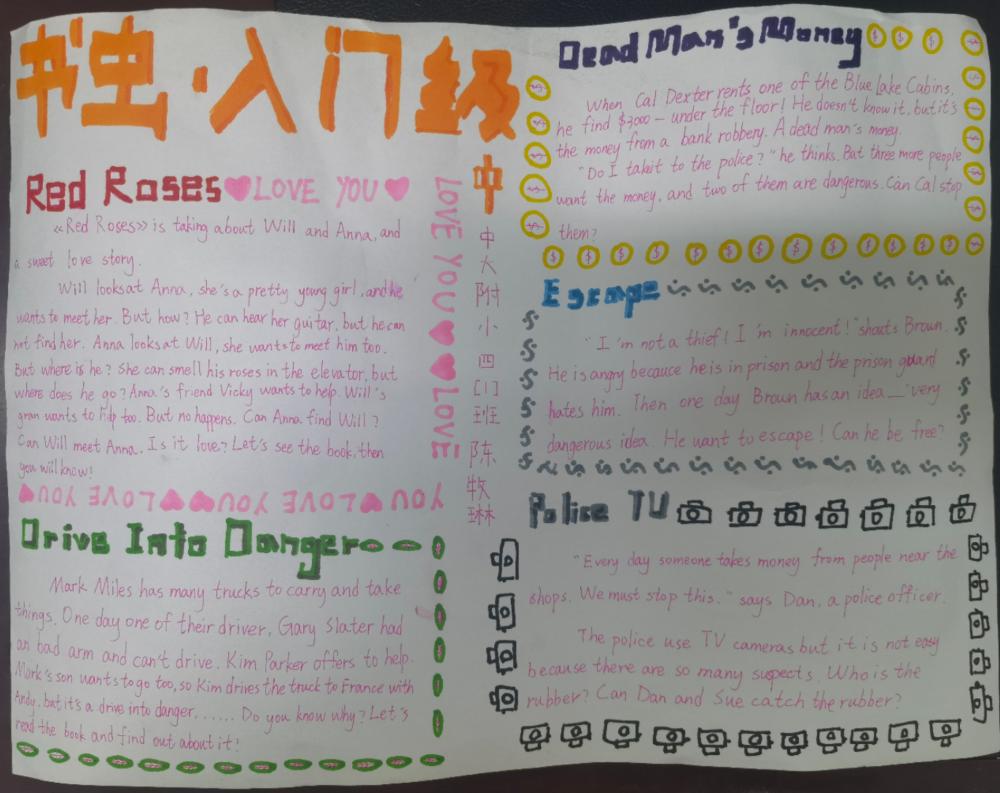 书虫·入门级
中
中大附小四(1)班陈牧琳
Red Roses♥LOVE YOU♥
LOVE YOU♥♥LOVE
《Red Roses》 is taking about Will and Anna, and
a sweet love story.
Will looks at Anna, she's a pretty young girl, and he
wants to meet her. But how? He can hear her guitar, but he can
not find her. Anna looks at Will, she wants to meet him too.
But where is he? She can smell his roses in the elevator, but
where does he go? Anna's friend Vicky wants to help. Will's
gran wants to help too. But no happens. Can Anna find Will?
Can Will meet Anna. Is it love? Let's see the book, then
you will know!
YOU♥LOVE YOU♥♥LOVE YOU♥
Drive Into Danger
Mark Miles has many trucks to carry and take
things. One day one of their driver, Gary Slater had
an bad arm and can't drive. Kim Parker offers to help.
Mark's son wants to go too, so Kim drives the truck to France with
Andy, but it's a drive into danger...... Do you know why? Let's
read the book and find out about it!
Dead Man's Money
When Cal Dexter rents one of the Blue Lake Cabins,
he find $3000 — under the floor! He doesn't know it, but it's
the money from a bank robbery. A dead man's money.
"Do I takit to the police?" he thinks. But three more people
want the money, and two of them are dangerous. Can Cal stop
them?
Escape
"I'm not a thief! I'm innocent!" shouts Brown.
He is angry because he is in prison and the prison guard
hates him. Then one day Brown has an idea — very
dangerous idea. He want to escape! Can he be free?
Police TV
"Every day someone takes money from people near the
shops. We must stop this." says Dan, a police officer.
The police use TV cameras but it is not easy
because there are so many suspects. Who is the
rubber? Can Dan and Sue catch the rubber?